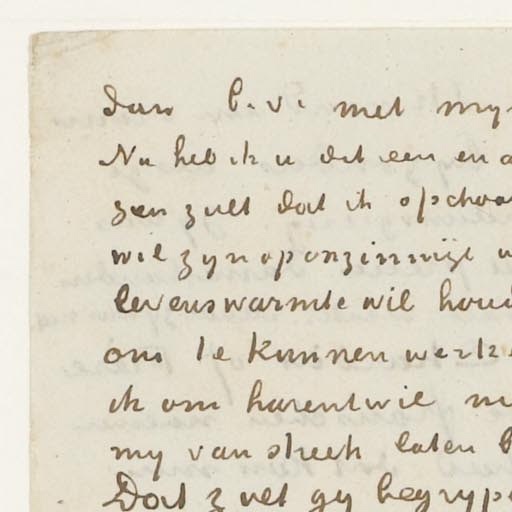 dan b.v. met myn
Nu heb ik u dit een en a
zen zult dat ik ofschoo
wil zyn op onzinnige w
levenswarmte wil houd
om te kunnen werke
ik om harentwil my
my van streek laten b
Dat zult gy begrype